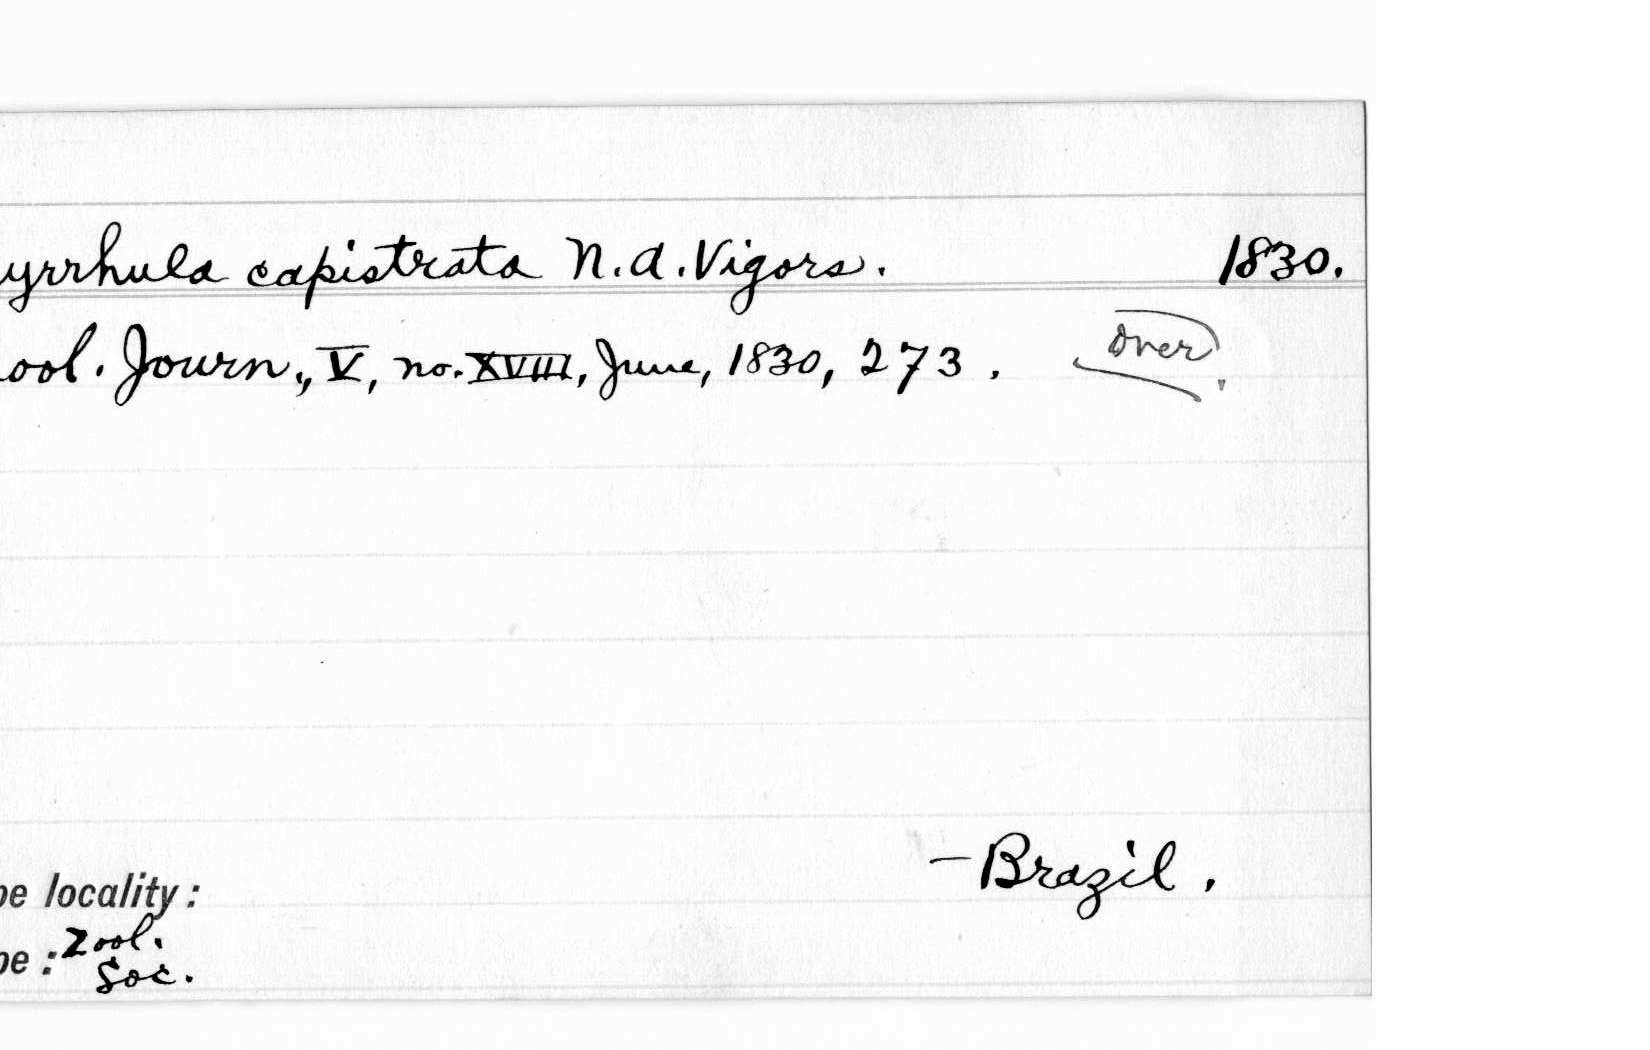 yrrhula capistrata N.A.Vigors. 1830.
ool. Journ., V, no. XVIII, June, 1830, 273. over
—Brazil.
pe locality:
pe: Zool.
Soc.